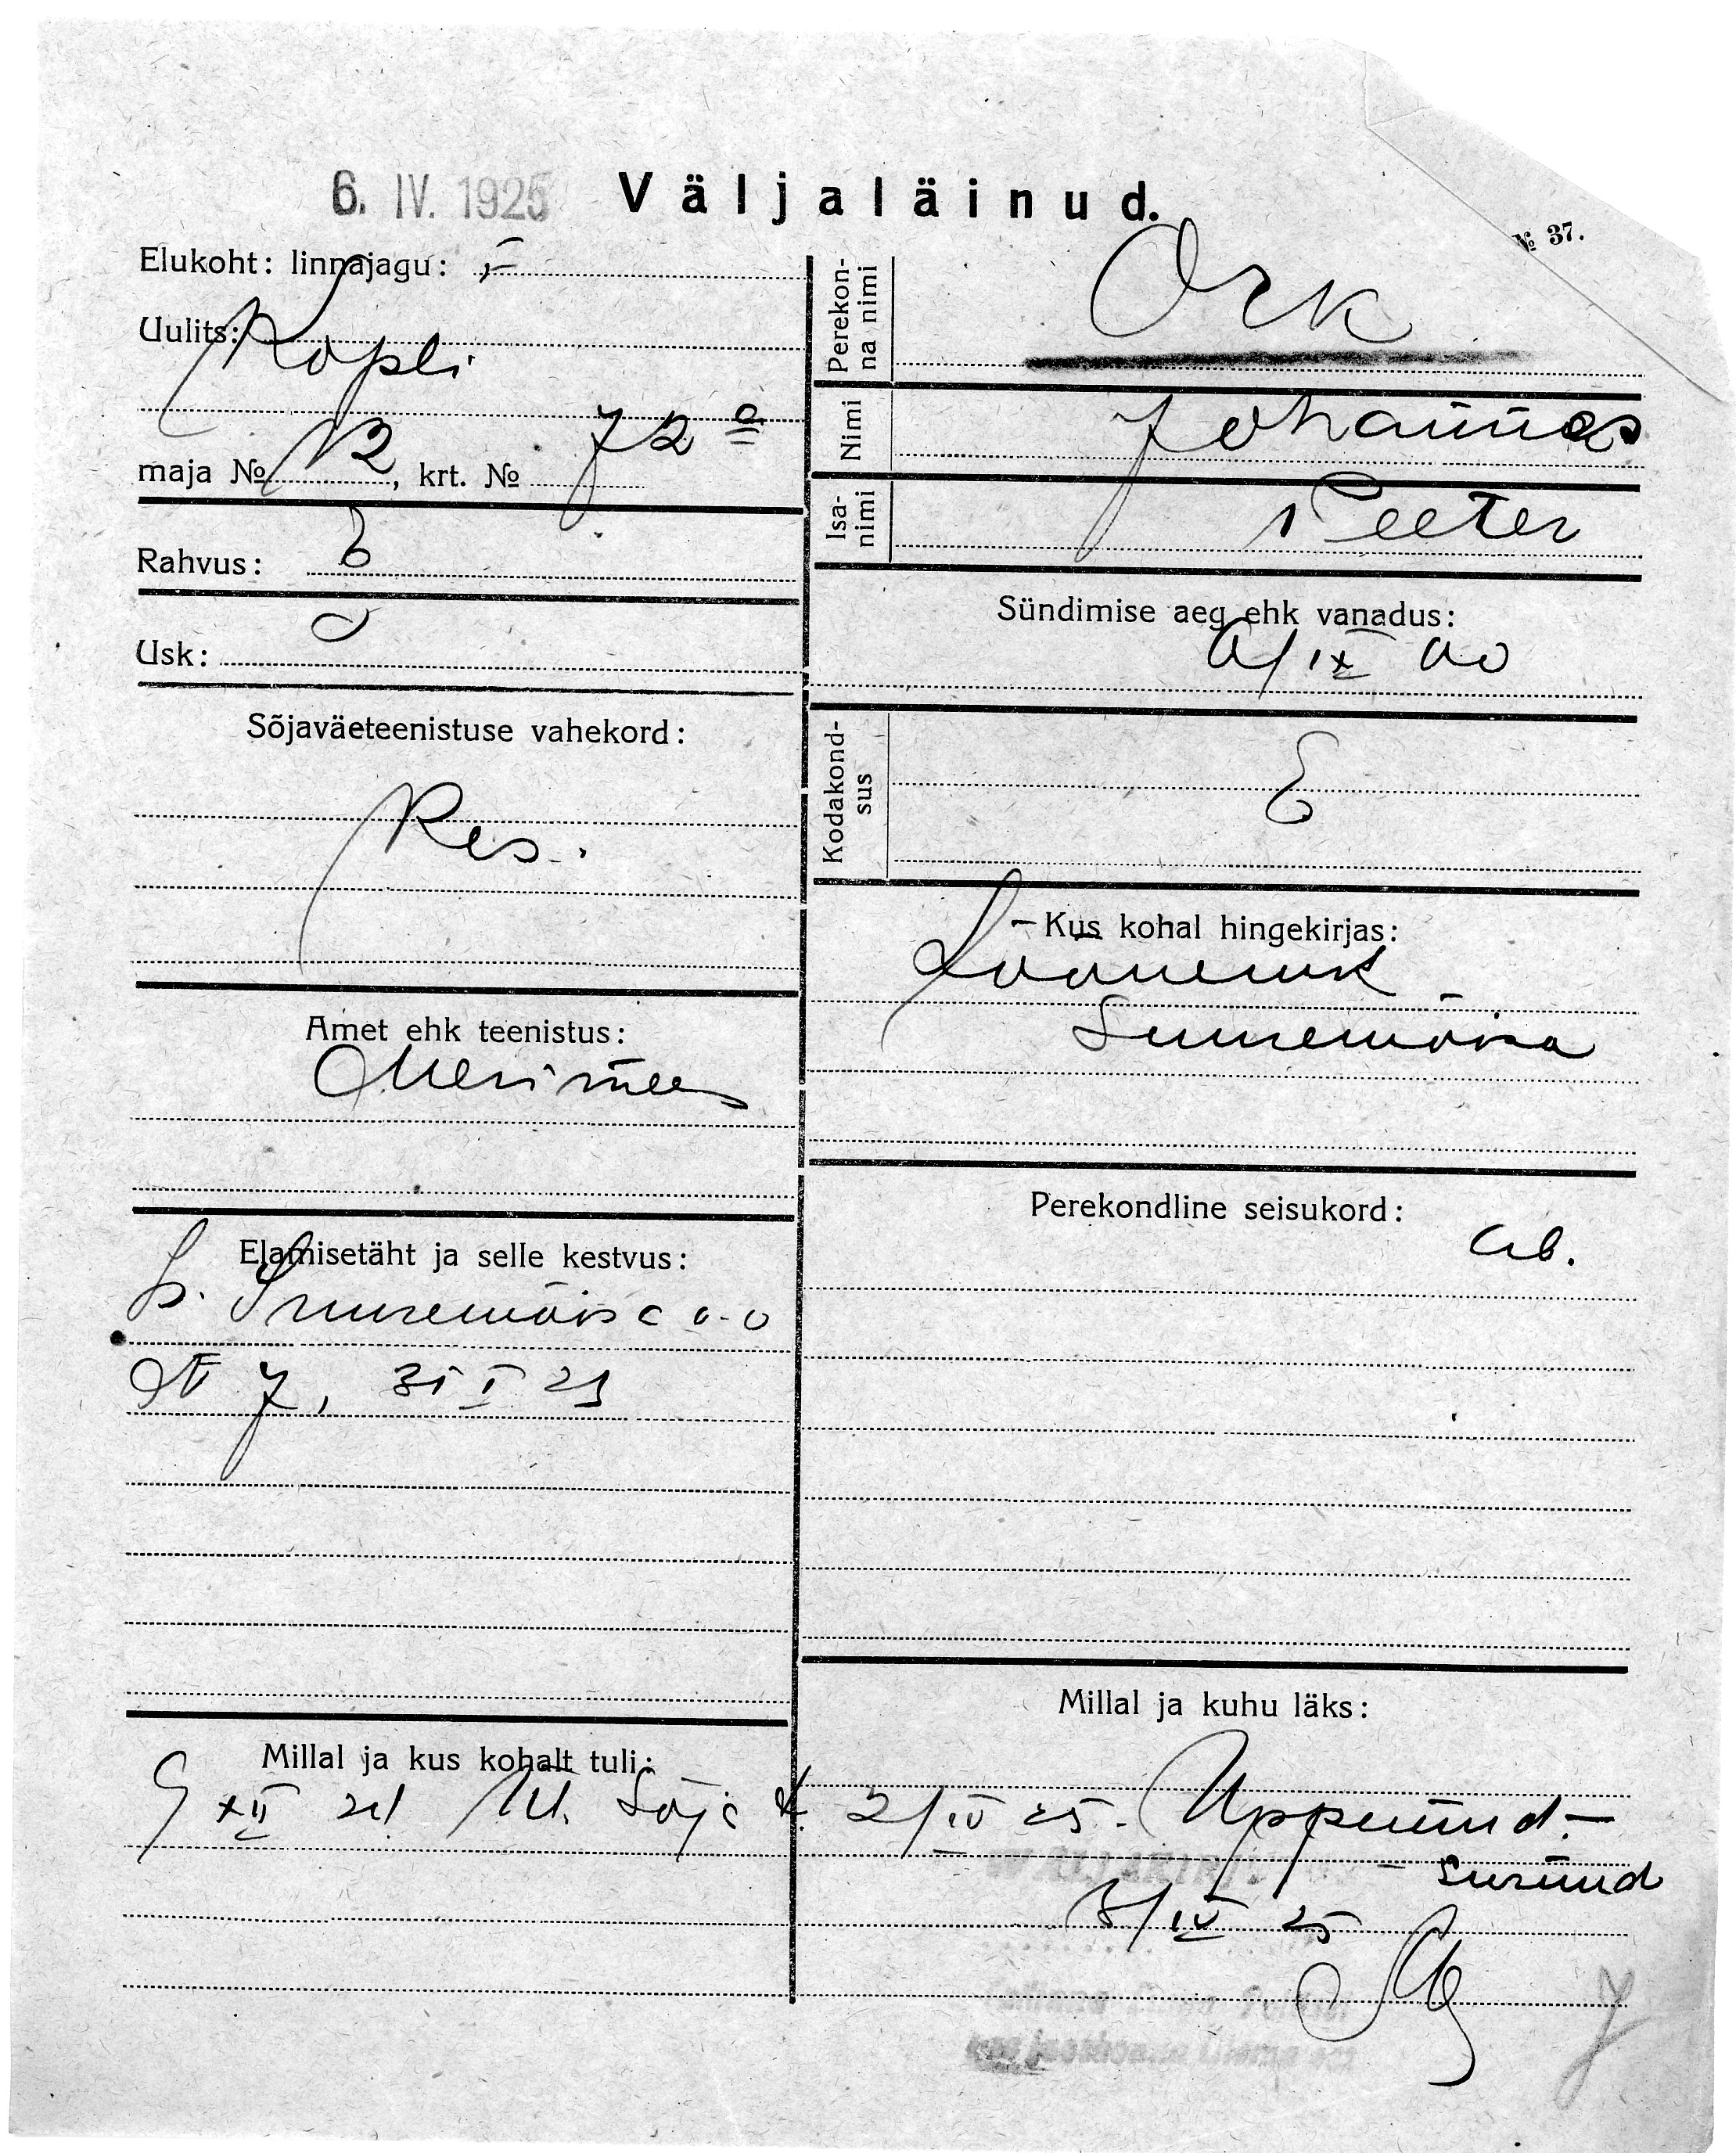 6. IV. 1925 Väljaläinud.
№ 37.
Elukoht: linnajagu:
Uulits: Kopli
maja № 12, krt. № 72 a
Rahvus: E
Usk:
Sõjaväeteenistuse vahekord:
Res.
Amet ehk teenistus:
Merimees
Elamisetäht ja selle kestvus:
L. Suuremõisa v.-v
№ 7, 31 I 21
Millal ja kus kohalt tuli:
9 XII 24 Sõja
Perekonna nimi Ork
Nimi Johannes
Isanimi Peeter
Sündimise aeg ehk vanadus:
IX 00
Kodakondsus E
Kus kohal hingekirjas:
Läänemk
Suuremõisa
Perekondline seisukord:
ab.
Millal ja kuhu läks:
2/IV 25. Uppunud. –
– surnud
/IV 25